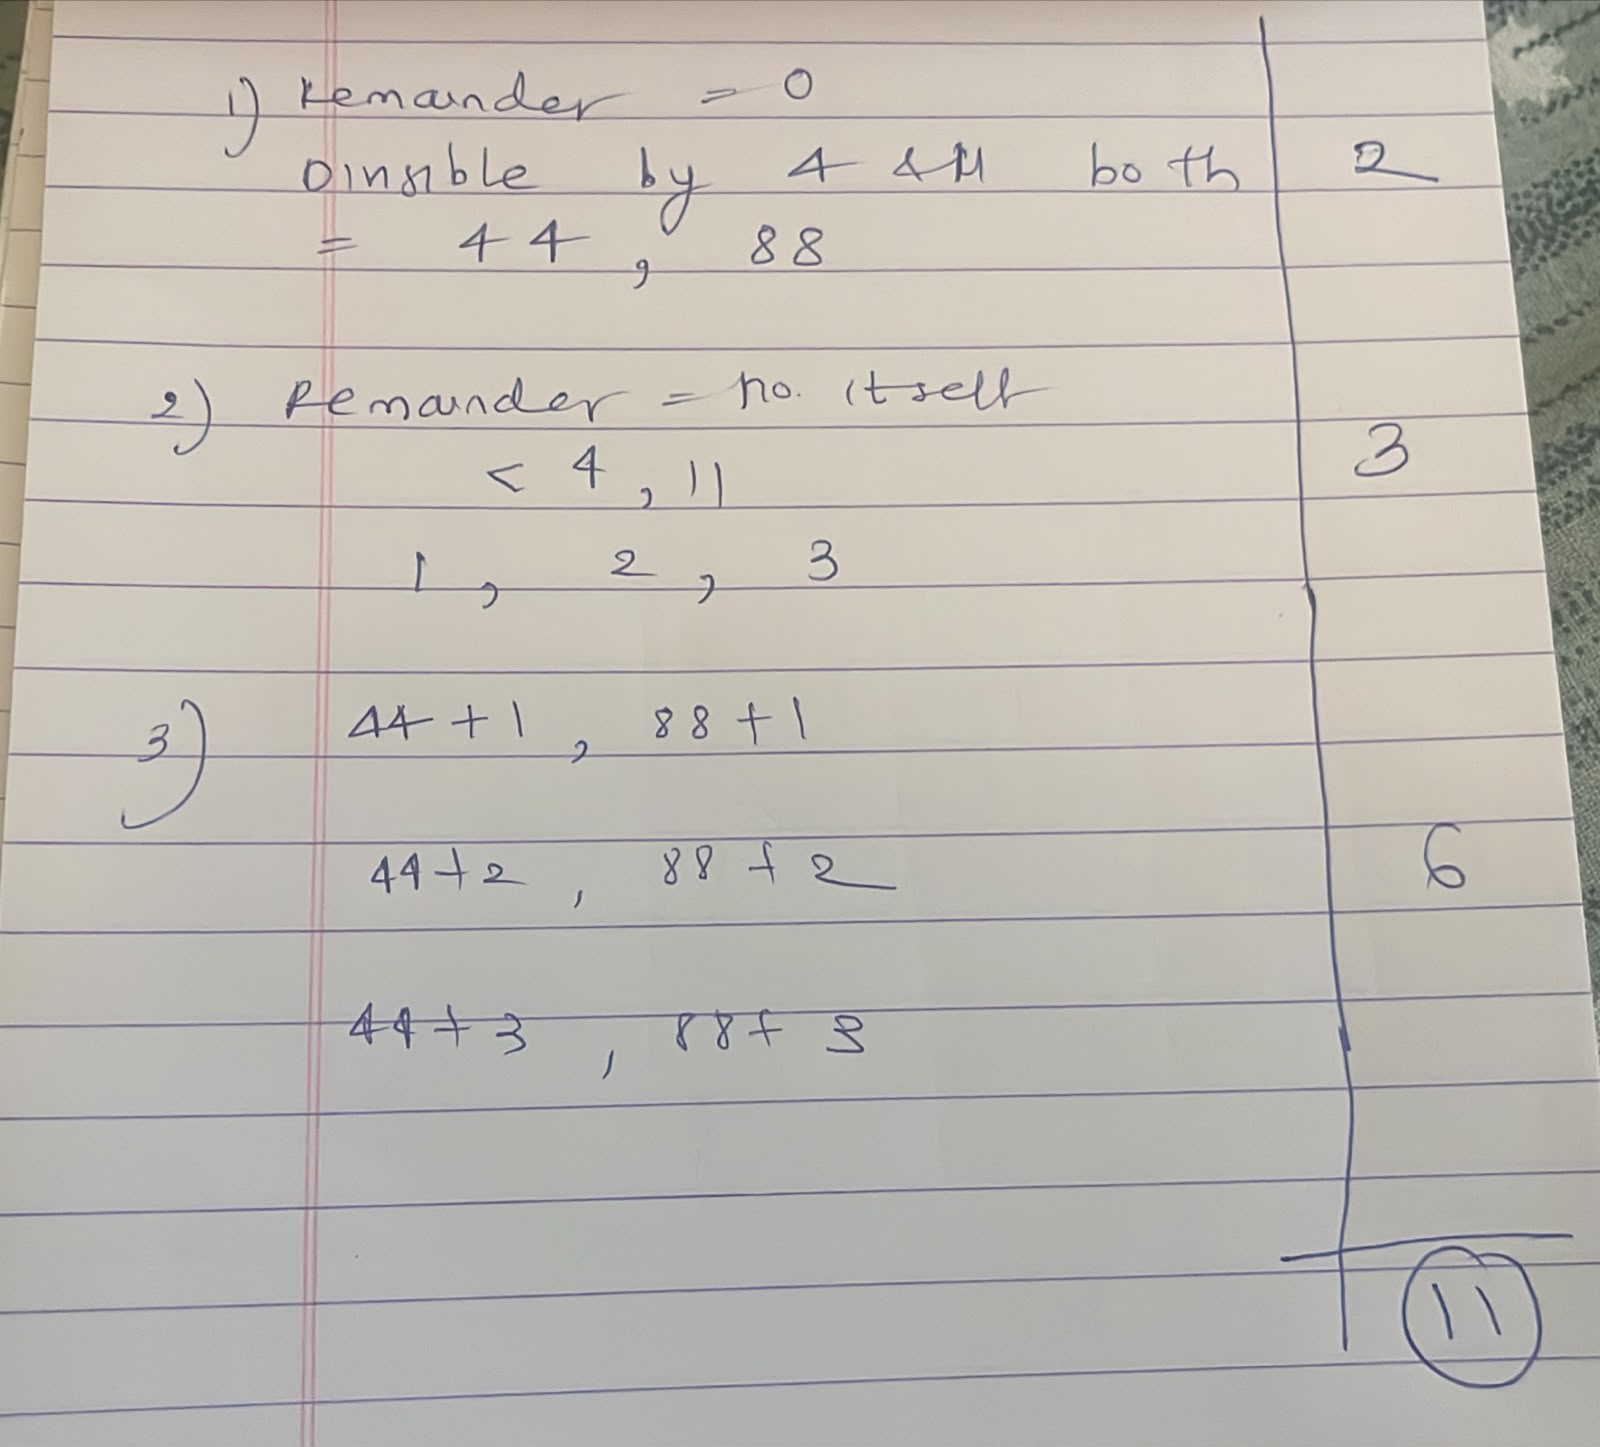 1) Remainder = 0
Divisible by 4 & 11 both 2
= 44, 88
2) Remainder = no. itself
< 4, 11 3
1, 2, 3
3) 44+1, 88+1
44+2, 88+2 6
44+3, 88+3
11